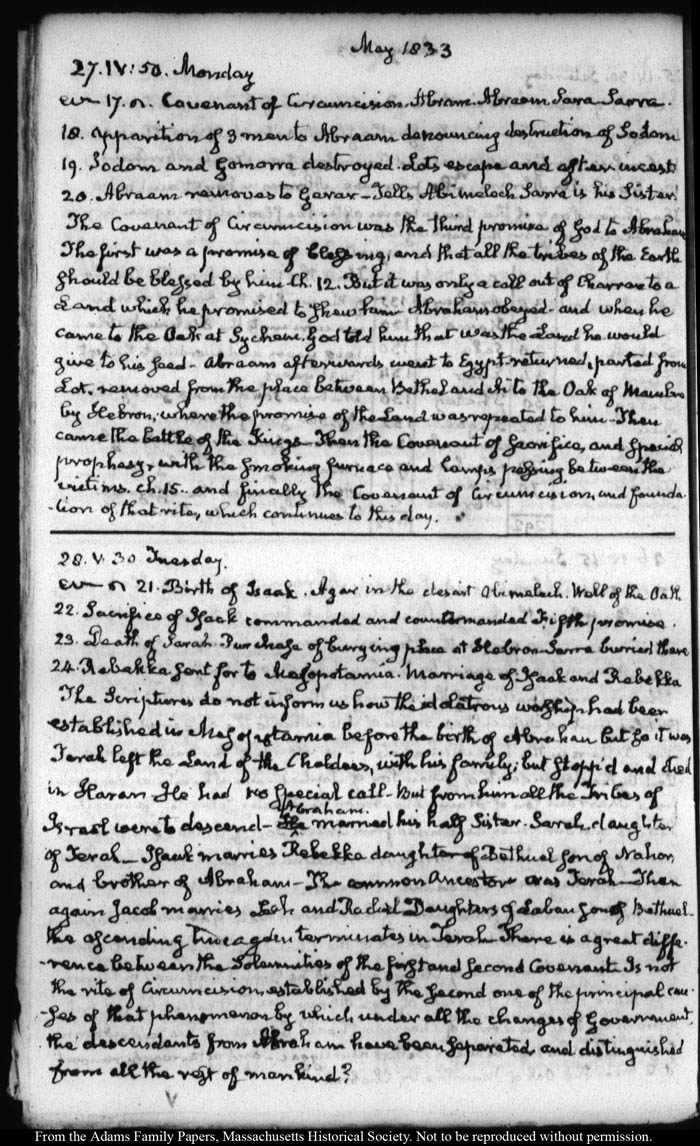 May 1833
27. IV: 50. Monday
17. Covenant of Circumcision. Abram. Abraam Sara Sarra.
18. apparition of 3 men to Abraam denouncing destruction of Sodom
19. Sodom and Gomorra destroyed. Lots escape and after incest
20. Abraam removes to Gerar – Tells Abimelech Sarra is his Sister.
The Covenant of Circumcision was the third promise of God to Abraham
The first was a promise of blessing, and that all the tribes of the Earth
should be blessed by him Ch. 12. But it was only a call out of Charran to a
Land which he promised to shew him Abraham obeyed and when he
came to the Oak at Sychem. God told him that was the Land he would
give to his seed – Abraam afterwards went to Egypt. returned, parted from
Lot, removed from the place between Bethel and Ai to the Oak of Mambre
by Hebron; where the promise of the Land was repeated to him – Then
came the battle of the Kings – Then the Covenant of Sacrifice, and special
prophesy, with the smoking furnace and lamps passing between the
victims. ch. 15. and finally the Covenant of Circumcision, and founda-
-tion of that rite, which continues to this day.
28. V. 30 Tuesday.
21. Birth of Isaak. Agar in the desart Abimelech. Well of the Oath
22. Sacrifice of Isaak commanded and countermanded Fifth promise.
23. Death of Sarah. Purchase of burying place at Hebron. Sarra buried there
24. Rebekka sent for to Mesopotamia. Marriage of Isaak and Rebekka
The Scriptures do not inform us how the idolatrous worship had been
established in Mesopotamia before the birth of Abraham but so it was
Terah left the Land of the Chaldees, with his family; but stopp'd and died
in Haran He had no special call – But from him all the Tribes of
Israel were to descend – Abraham married his half Sister. Sarah, daughter
of Terah – Isaak marries Rebekka daughter of Bethuel son of Nahor,
and brother of Abraham – The common Ancestor was Terah – Then
again Jacob marries Leah and Rachel Daughters of Laban son of Bethuel.
the ascending line again terminates in Terah There is a great diffe-
-rence between the Solemnities of the first and second Covenant. Is not
the rite of Circumcision, established by the second one of the principal cau-
-ses of that phenomenon by which under all the changes of Government
the descendants from Abraham have been separated, and distinguished
from all the rest of mankind?
From the Adams Family Papers, Massachusetts Historical Society. Not to be reproduced without permission.